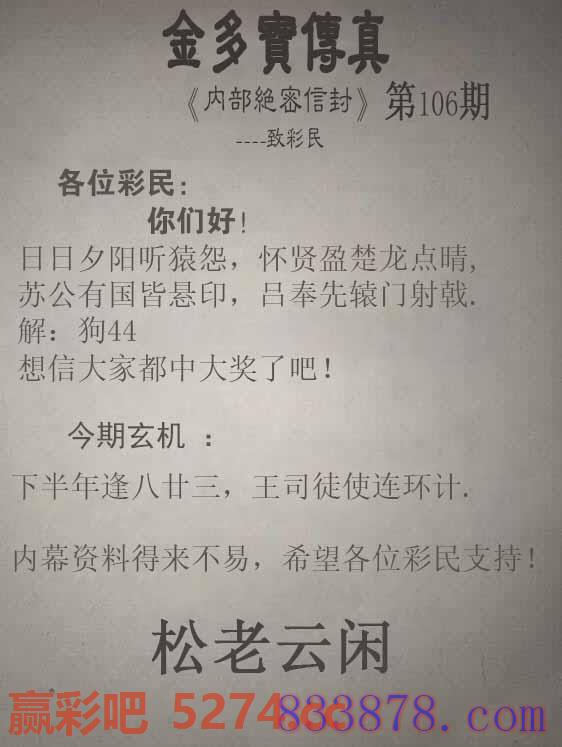 金多寶傳真
《内部絶密信封》第106期
----致彩民
各位彩民:
你们好!
日日夕阳听猿怨，怀贤盈楚龙点晴,
苏公有国皆悬印，吕奉先辕门射戟.
解：狗44
想信大家都中大奖了吧！
今期玄机 ：
下半年逢八廿三，王司徒使连环计.
内幕资料得来不易，希望各位彩民支持！
松老云闲
赢彩吧 5274.cc
833878.com